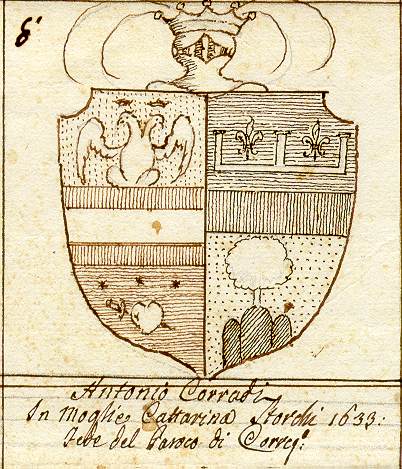 8.
Antonio Corradi
In Moglie Cattarina Storchi 1633:
Fede del Paroco di Correg.º